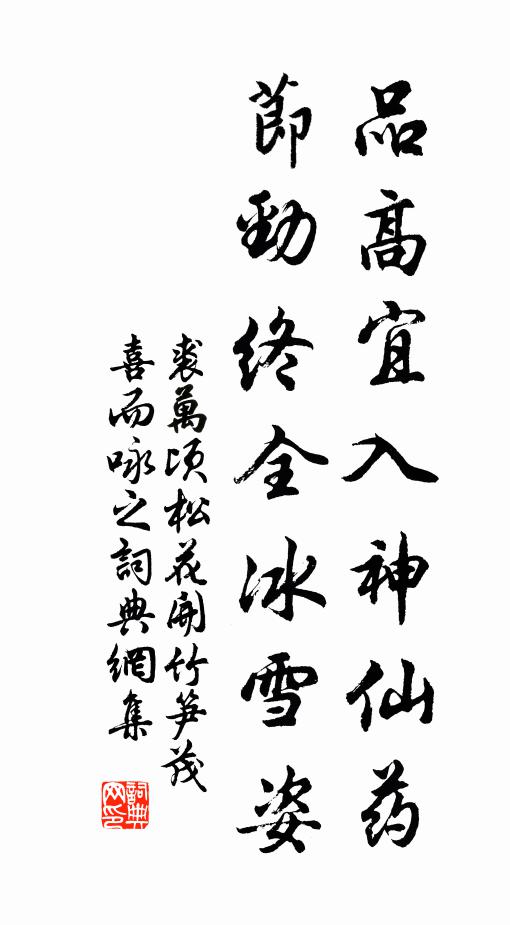 品高宜入神仙药
節勁终全冰雪姿
裘萬顷松花開竹笋茂
喜而咏之詞典網集
詞典
网印